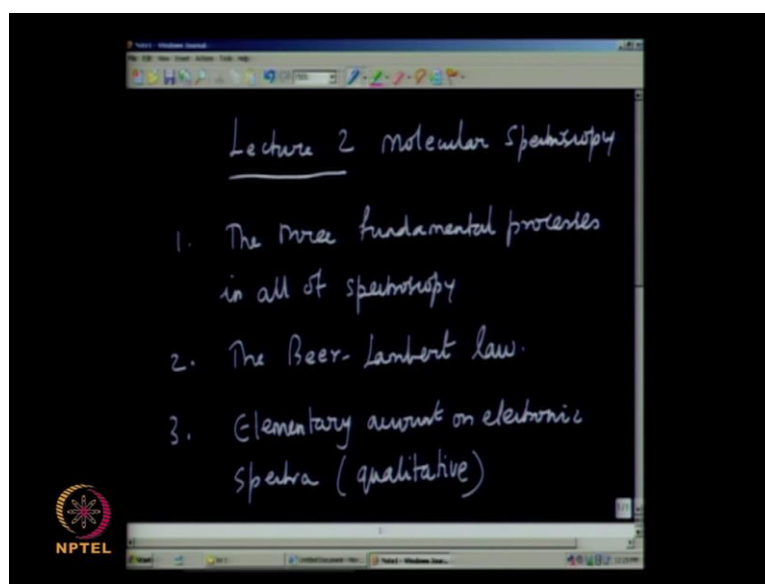 Note1 - Windows Journal
File Edit View Insert Actions Tools Help
Lecture 2 Molecular Spectroscopy
1. The three fundamental processes
in all of spectroscopy
2. The Beer-Lambert law.
3. Elementary account on electronic
spectra (qualitative)
1/1
1
NPTEL